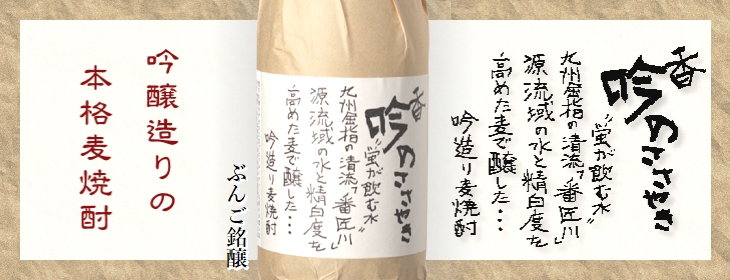 香
吟のささやき
"蛍が飲む水"
九州屈指の清流、番匠川
源流域の水と精白度を
高めた麦で醸した・・・
吟造り麦焼酎
香
吟のささやき
"蛍が飲む水"
九州屈指の清流、番匠川
源流域の水と精白度を
高めた麦で醸した・・・
吟造り麦焼酎
ぶんご銘醸
吟醸造りの
本格麦焼酎